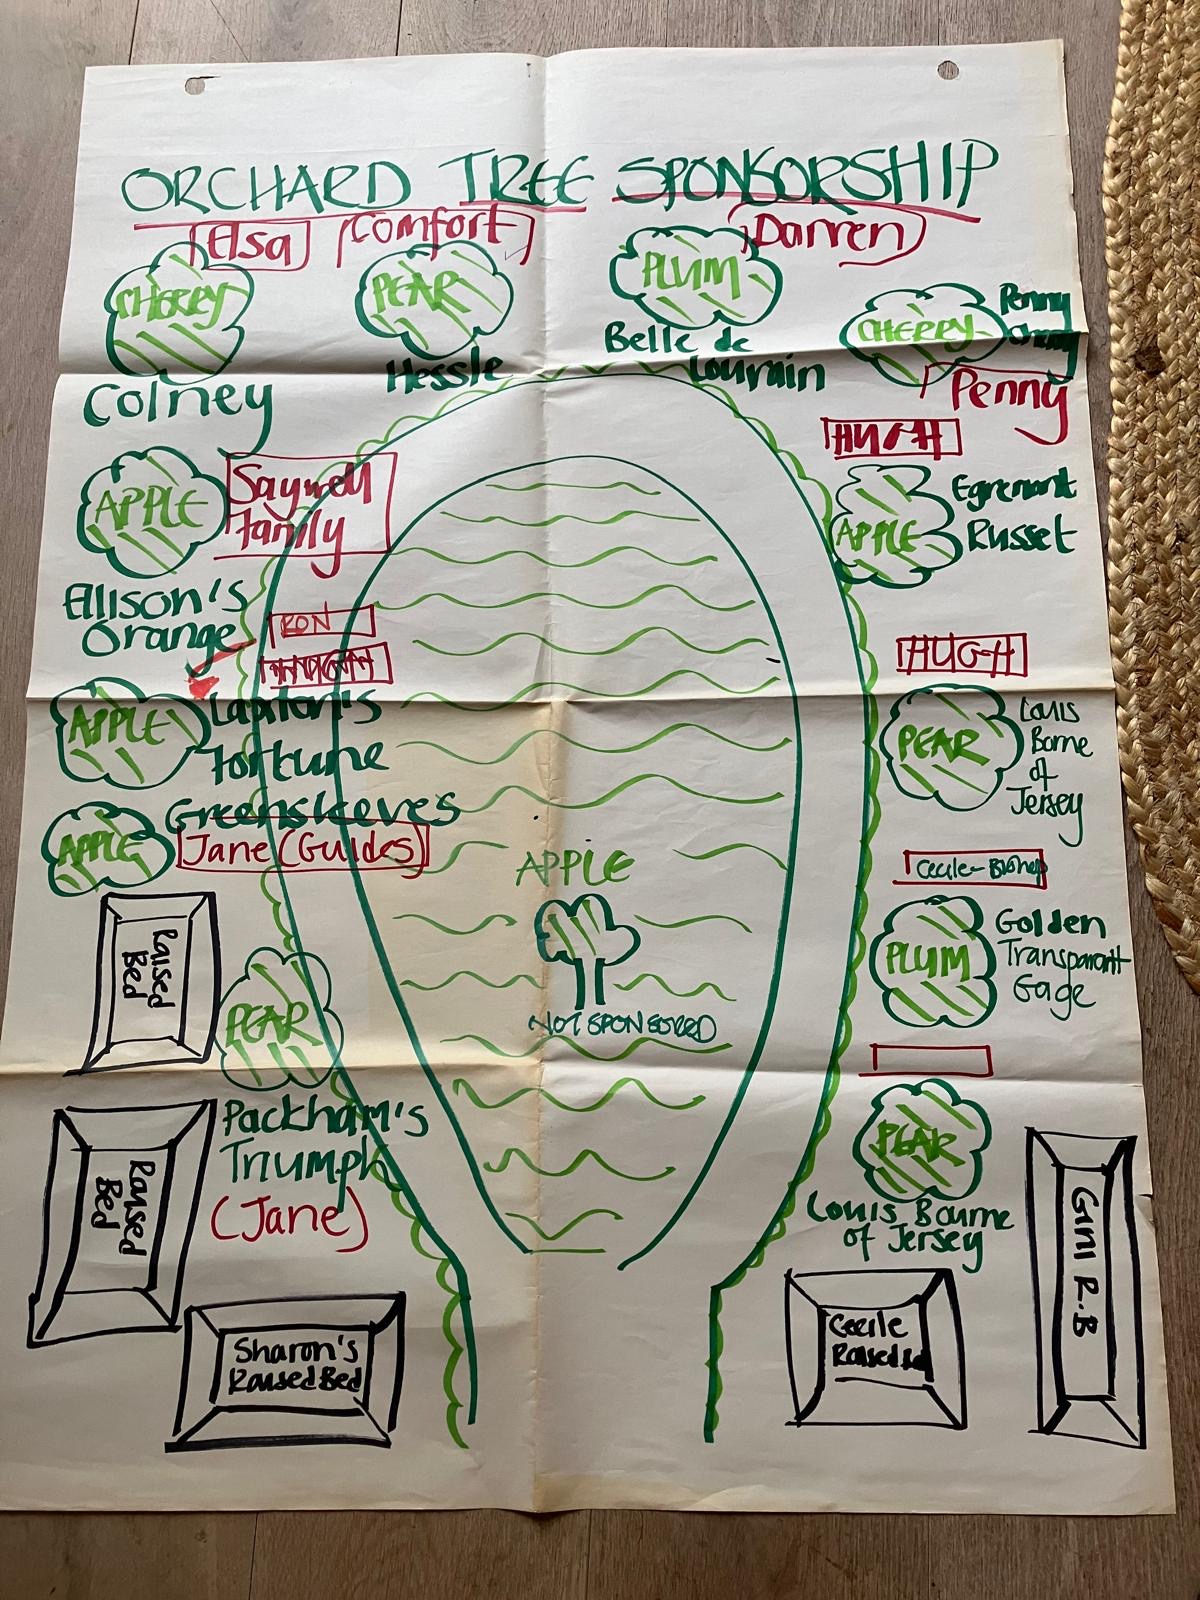 ORCHARD TREE SPONSORSHIP
Elsa
CHERRY
Colney
Comfort
PEAR
Hessle
Darren
PLUM
Belle de
Louvrain
CHERRY
Penny
Penny
Saywell
family
APPLE
Ellison's
Orange
HUGH
APPLE
Egremont
Russet
RON
HUGH
APPLE
Laxton's
fortune
HUGH
PEAR
Louis
Borne
of
Jersey
Greensleeves
APPLE
Jane (Guides)
Cecile-Bishop
PLUM
Golden
Transparant
Gage
APPLE
NOT SPONSORED
Raised
Bed
PEAR
Packham's
Triumph
(Jane)
PEAR
Louis Bourne
of Jersey
Raised
Bed
Sharon's
Raised Bed
Cecile
Raised
GINI R.B